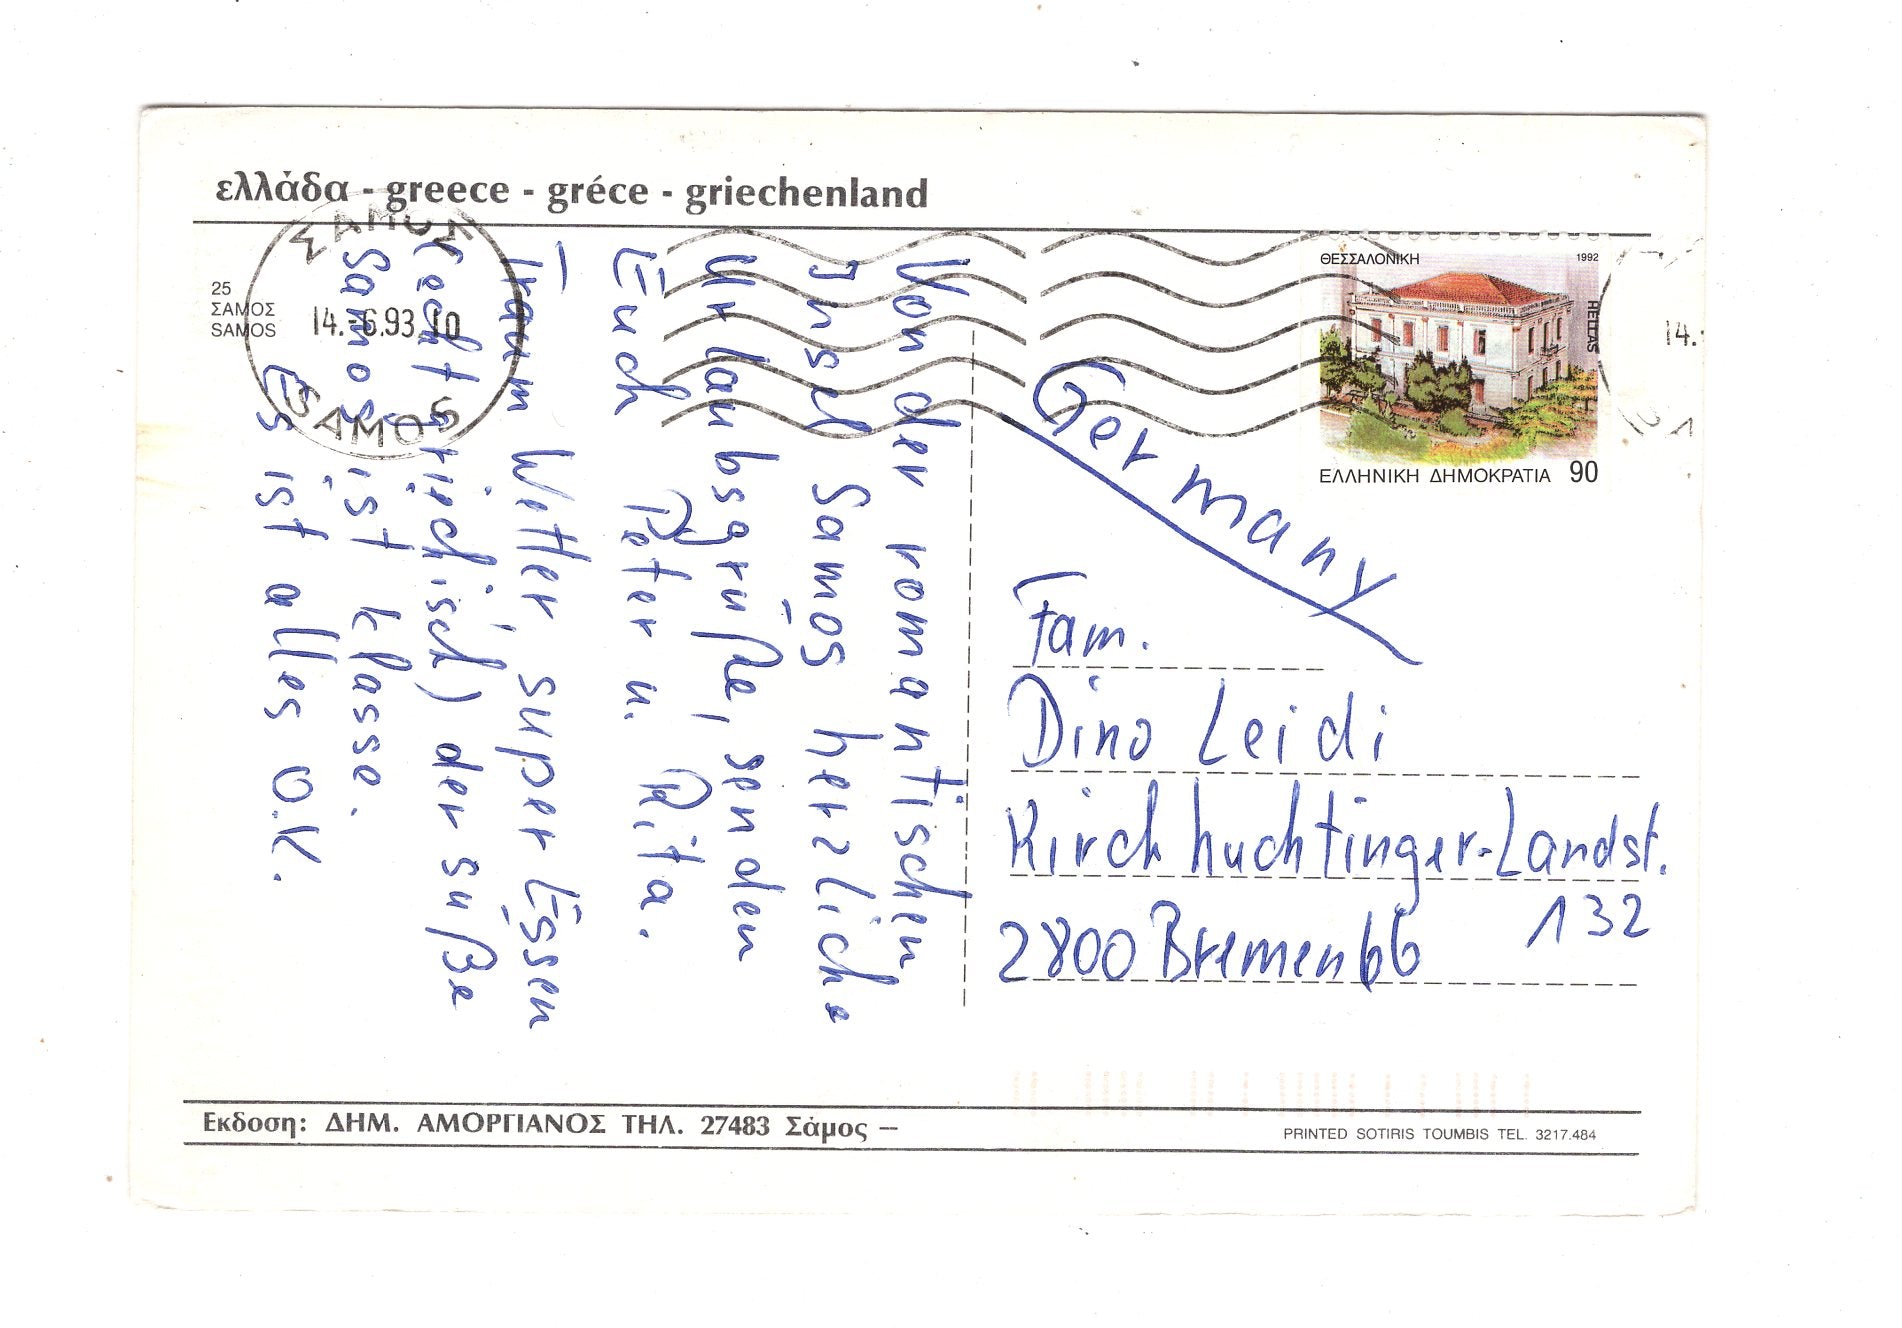 ελλάδα - greece - gréce - griechenland
25
ΣΑΜΟΣ
SAMOS
ΣΑΜΟΣ
14.-6.93.10
SAMOS
ΘΕΣΣΑΛΟΝΙΚΗ
1992
HELLAS
ΕΛΛΗΝΙΚΗ ΔΗΜΟΚΡΑΤΙΑ 90
14.
Von der romantischen
Insel Samos herzliche
Urlaubsgrüße, senden
Euch Peter u. Rita.
Traum Wetter, super Essen
(echt griechisch) der süße
Samos ist klasse.
Es ist alles O.K.
Germany
Fam.
Dino Leidi
Kirchhuchtinger-Landst.
132
2800 Bremen 66
Εκδοση: ΔΗΜ. ΑΜΟΡΓΙΑΝΟΣ ΤΗΛ. 27483 Σάμος –
PRINTED SOTIRIS TOUMBIS TEL. 3217.484